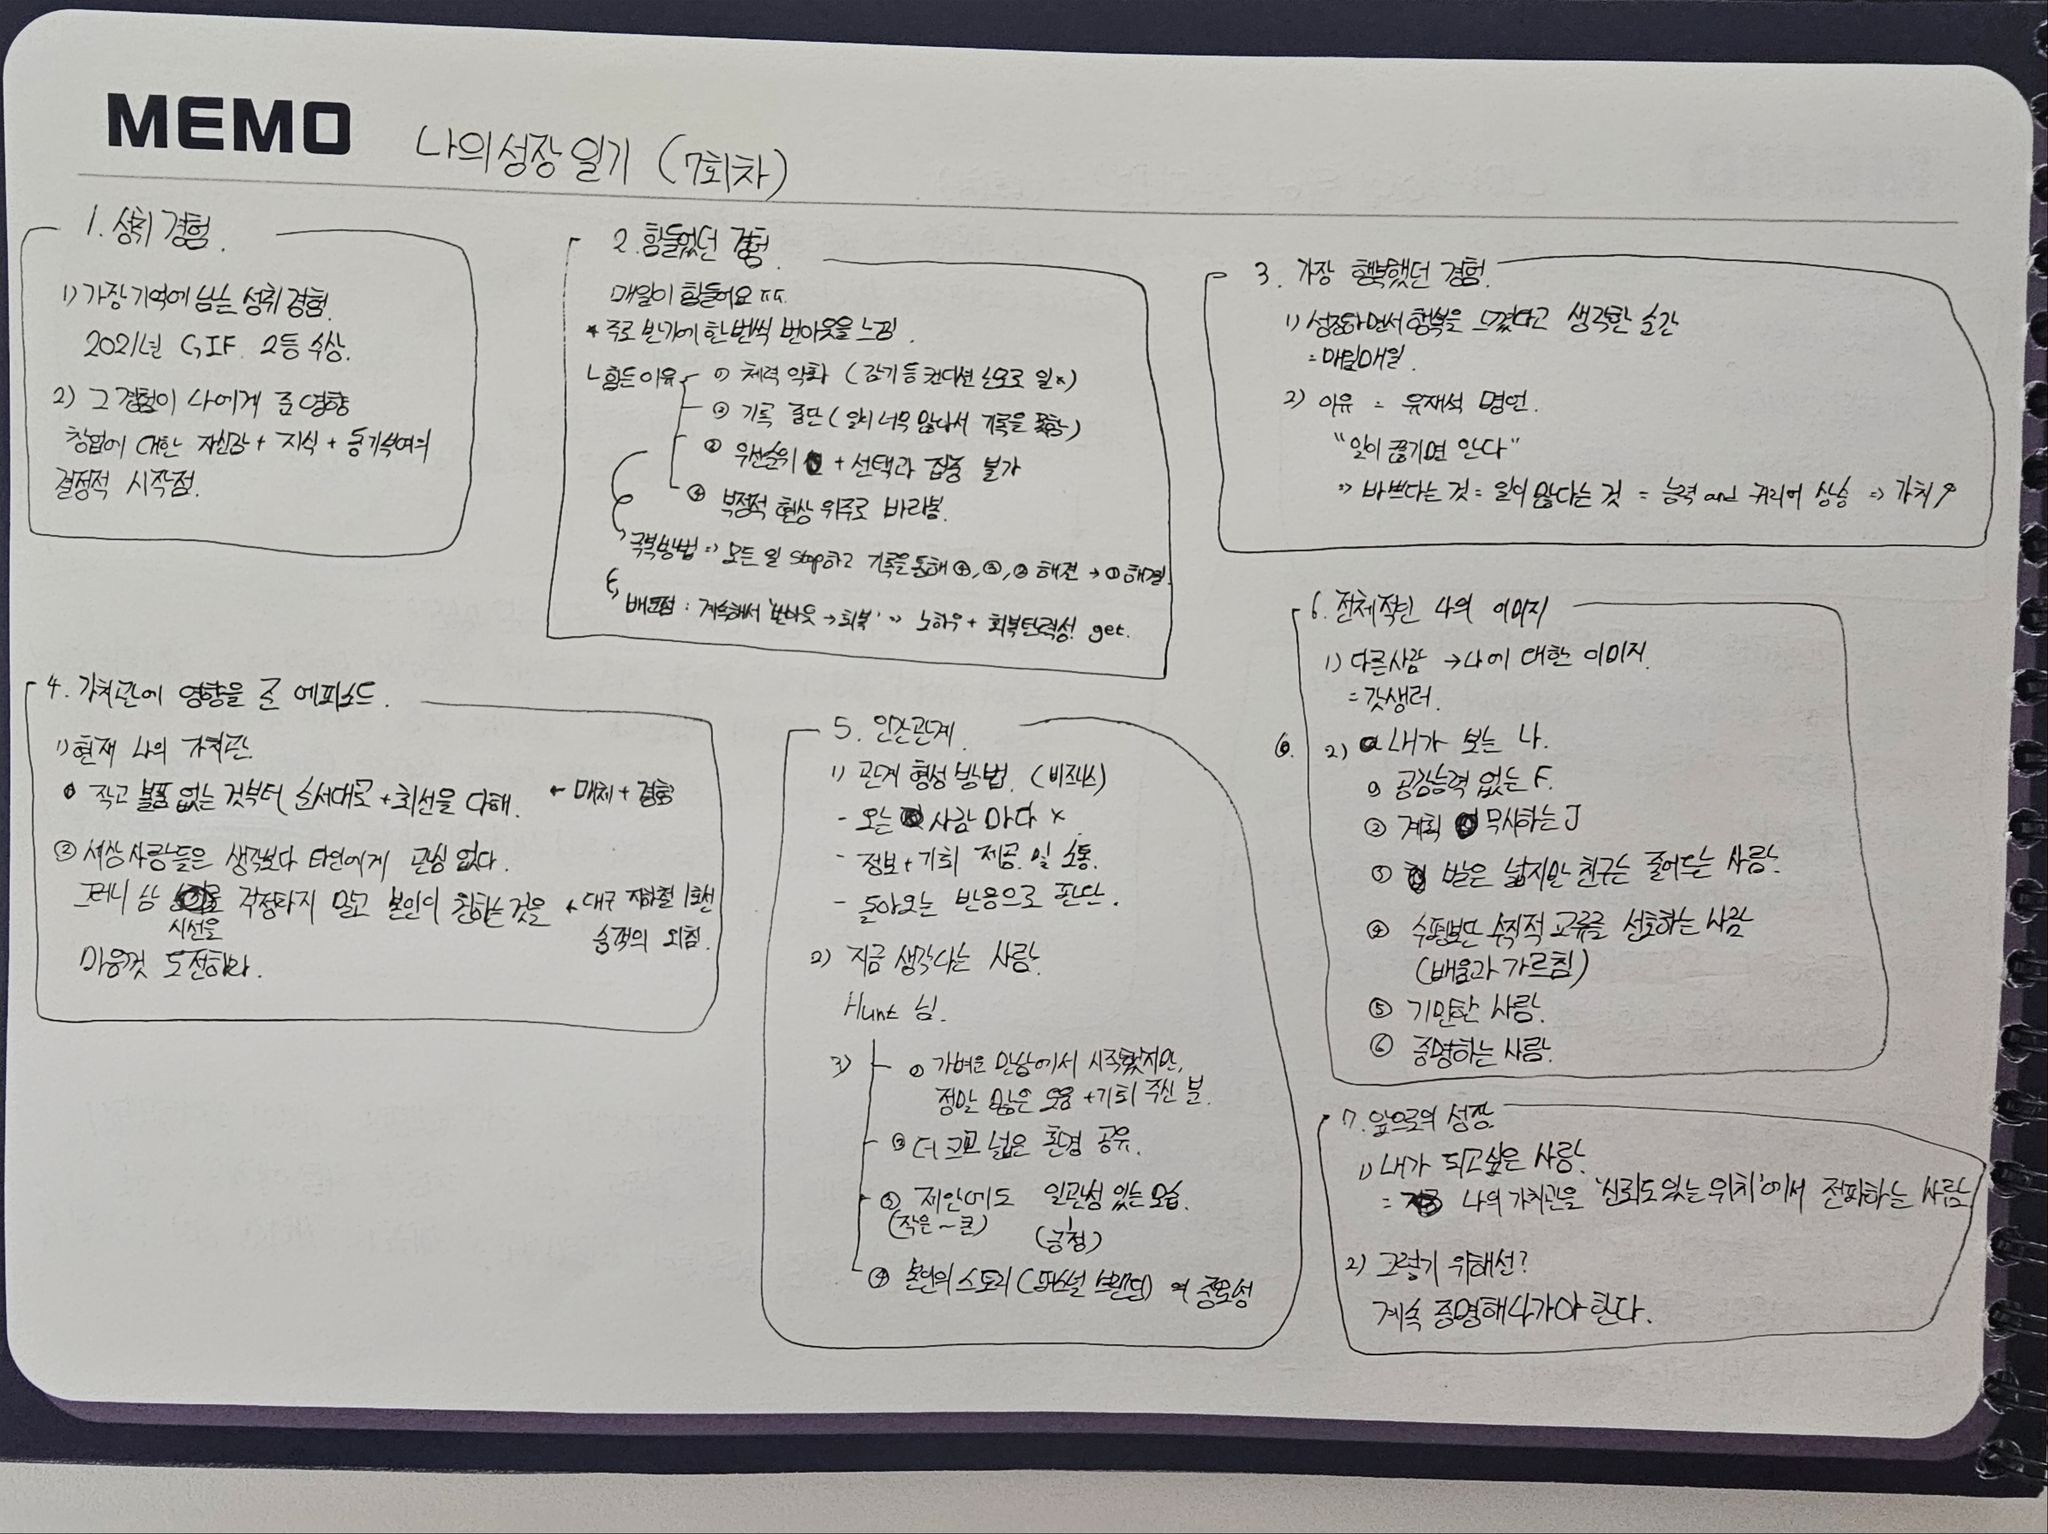 MEMO
나의 성장 일기 (7회차)
1. 성취 경험.
1) 가장 기억에 남는 성취 경험.
2021년 GIF. 2등 수상.
2) 그 경험이 나에게 준 영향
창업에 대한 자신감 + 지식 + 동기부여의
결정적 시작점.
2. 힘들었던 경험.
매일이 힘들어요 ㅠㅠ.
* 주로 반기에 한번씩 번아웃을 느낌.
ㄴ힘든 이유
① 체력 악화 (감기 등 컨디션 난조로 일x)
② 기록 중단 (일이 너무 많아서 기록을 못함)
③ 우선순위 + 선택과 집중 불가
④ 부정적 현상 위주로 바라봄.
극복방법 => 모든 일 stop하고 기록을 통해 ④, ③, ② 해결 → ① 해결.
배운점 : 계속해서 '번아웃 → 회복' => 노하우 + 회복탄력성 get.
3. 가장 행복했던 경험.
1) 성장하면서 행복을 느꼈다고 생각한 순간
= 매일매일.
2) 이유 = 유재석 명언.
"일이 끊기면 안다"
=> 바쁘다는 것 = 일이 많다는 것 = 능력 and 커리어 상승 => 가치↑
4. 가치관에 영향을 준 에피소드.
1) 현재 나의 가치관
① 작고 볼품 없는 것부터 순서대로 + 최선을 다해. ← 매체 + 경험
② 세상 사람들은 생각보다 타인에게 관심 없다.
그러니 남 시선을 걱정하지 말고 본인이 원하는 것을 ← 대구 지하철 1호선
승객의 외침.
마음껏 도전하라.
5. 인간관계.
1) 관계 형성 방법. (비즈니스)
- 오는 사람 마다 x.
- 정보 + 기회 제공 및 소통.
- 돌아오는 반응으로 판단.
2) 지금 생각나는 사람.
Hunt 님.
3)
① 가벼운 만남에서 시작했지만,
정말 많은 도움 + 기회 주신 분.
② 더 크고 넓은 환경 공유.
③ 제안에도 일관성 있는 모습.
(작은 ~ 큰) (긍정)
④ 본인의 스토리 (퍼스널 브랜딩) 의 중요성
6. 전체적인 나의 이미지
1) 다른사람 → 나에 대한 이미지.
= 갓생러.
6. 2) 내가 보는 나.
① 공감능력 없는 F.
② 계획 무시하는 J
③ 발은 넓지만 친구는 줄어드는 사람.
④ 수평보단 수직적 교류를 선호하는 사람
(배움과 가르침)
⑤ 기민한 사람.
⑥ 증명하는 사람.
7. 앞으로의 성장.
1) 내가 되고싶은 사람.
= 나의 가치관을 '신뢰도 있는 위치'에서 전파하는 사람.
2) 그렇기 위해선?
계속 증명해나가야 한다.